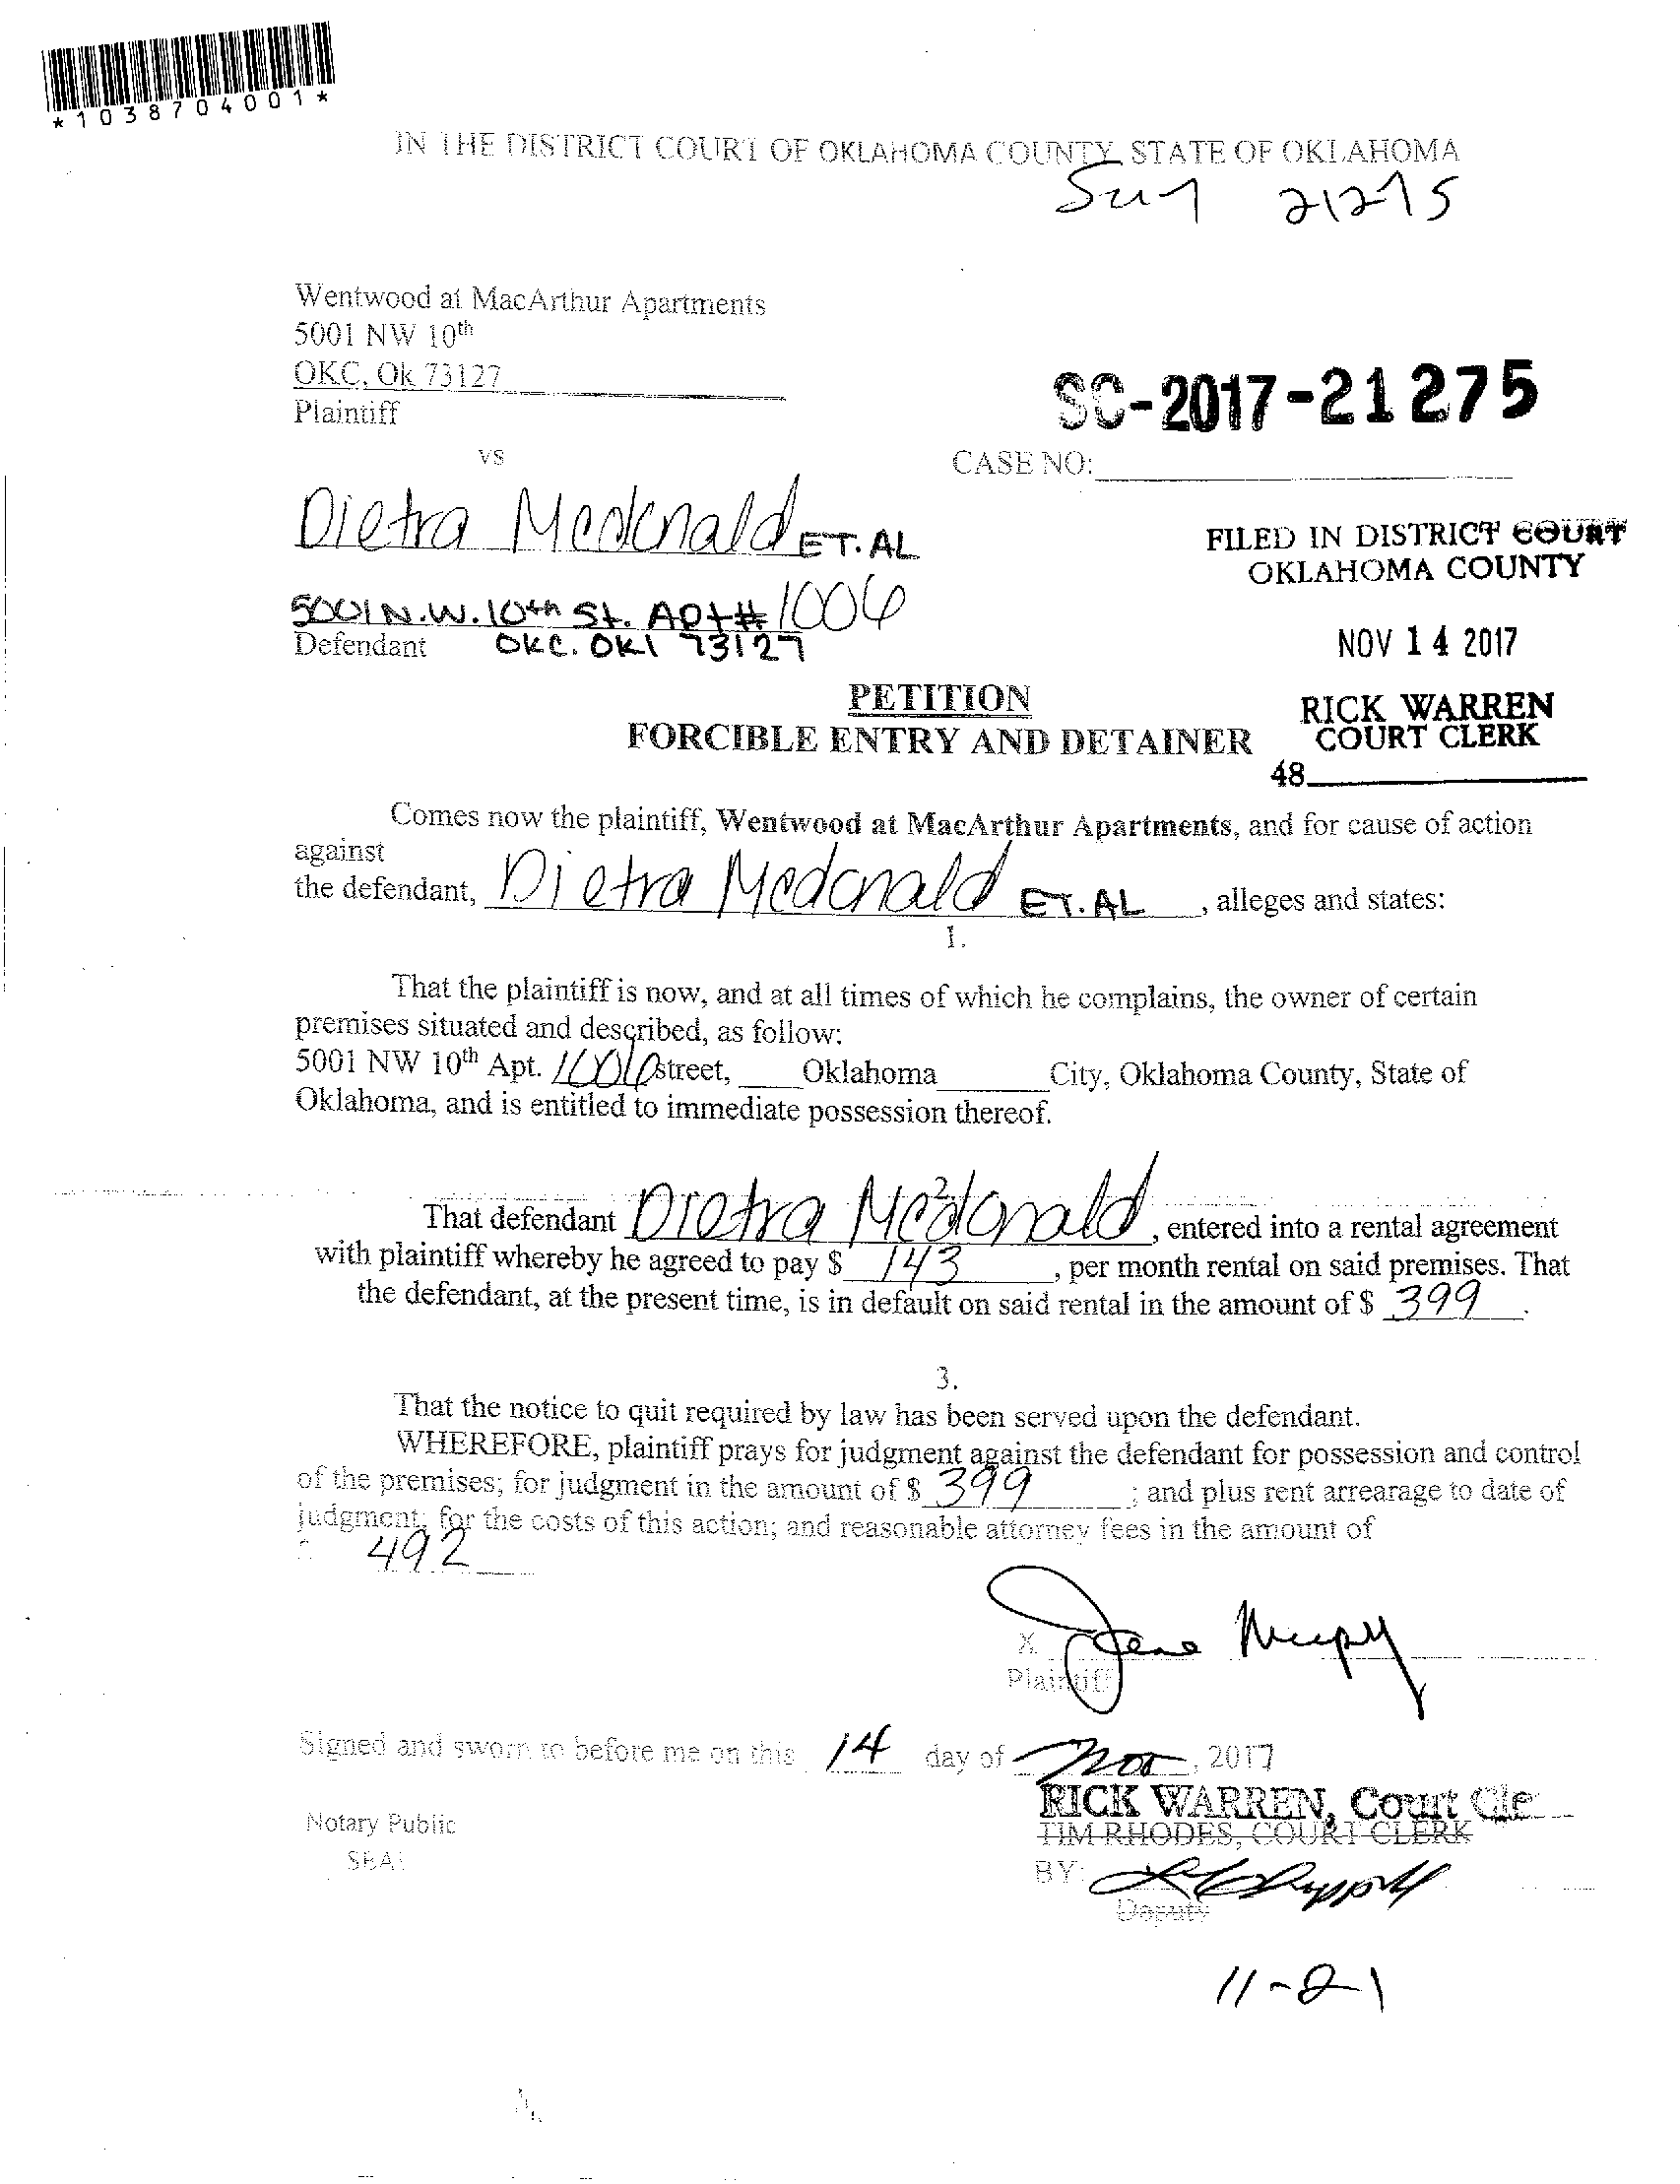 *1038704001*
IN THE DISTRICT COURT OF OKLAHOMA COUNTY, STATE OF OKLAHOMA
Wentwood at MacArthur Apartments
5001 NW 10th
OKC, Ok 73127
Plaintiff
SC-2017-21275
vs
CASE NO:
Dietra Mcdonald ET.AL
FILED IN DISTRICT COURT
OKLAHOMA COUNTY
5001 N.W. 10th St. Apt# 1006
Defendant OKC. OKl 73127
NOV 14 2017
PETITION
FORCIBLE ENTRY AND DETAINER
RICK WARREN
COURT CLERK
48
Comes now the plaintiff, Wentwood at MacArthur Apartments, and for cause of action
against
the defendant, Dietra Mcdonald ET.AL , alleges and states:
1.
That the plaintiff is now, and at all times of which he complains, the owner of certain
premises situated and described, as follow:
5001 NW 10th Apt. 1006 street, Oklahoma City, Oklahoma County, State of
Oklahoma, and is entitled to immediate possession thereof.
2
That defendant Dietra Mcdonald , entered into a rental agreement
with plaintiff whereby he agreed to pay $ 143 , per month rental on said premises. That
the defendant, at the present time, is in default on said rental in the amount of $ 399 .
3.
That the notice to quit required by law has been served upon the defendant.
WHEREFORE, plaintiff prays for judgment against the defendant for possession and control
of the premises; for judgment in the amount of $ 399 ; and plus rent arrearage to date of
judgment; for the costs of this action; and reasonable attorney fees in the amount of
492
X
Plaintiff
Signed and sworn to before me on this 14 day of Nov , 2017
RICK WARREN, Court Cle
TIM RHODES, COURT CLERK
Notary Public
SEAL
BY:
Deputy
11-21